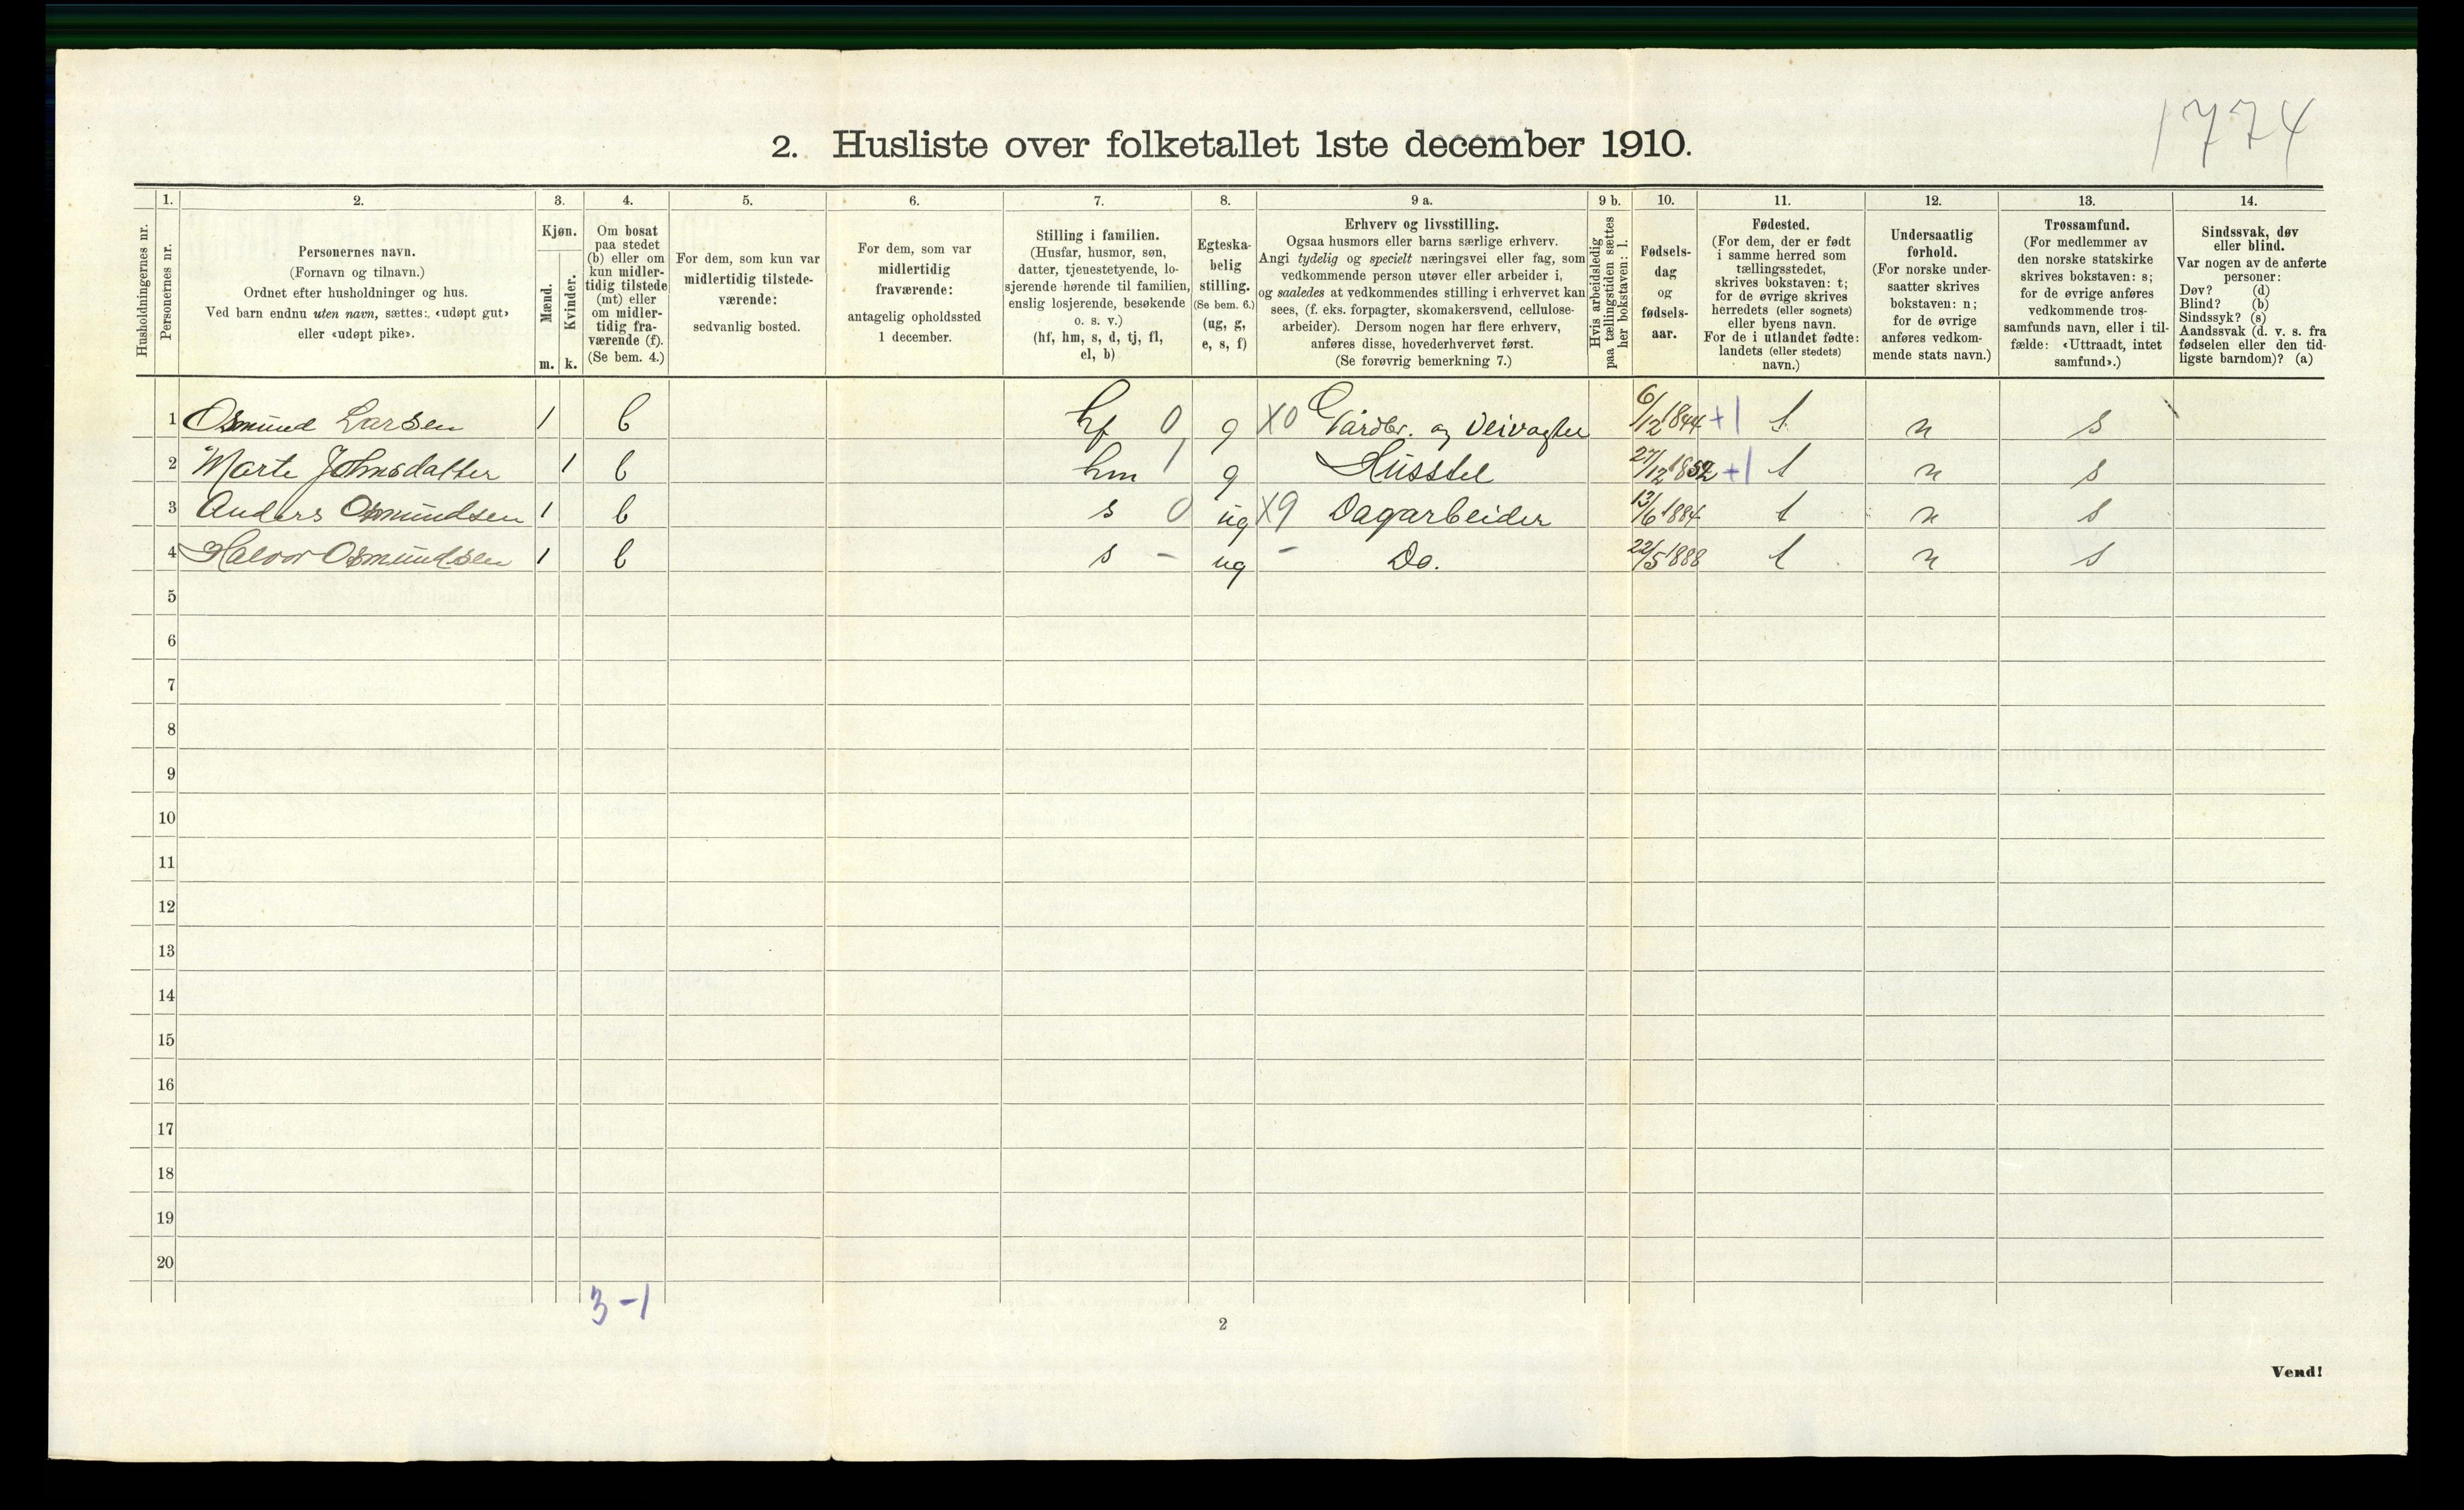 1774
2. Husliste over folketallet 1ste december 1910.
Husholdningernes nr.
1.
Personernes nr.
2.
Personernes navn.
(Fornavn og tilnavn.)
Ordnet efter husholdninger og hus.
Ved barn endnu uten navn, sættes: «udøpt gut»
eller «udøpt pike».
3.
Kjøn.
Mænd.
Kvinder.
m. k.
4.
Om bosat
paa stedet
(b) eller om
kun midler-
tidig tilstede
(mt) eller
om midler-
tidig fra-
værende (f).
(Se bem. 4.)
5.
For dem, som kun var
midlertidig tilstede-
værende:
sedvanlig bosted.
6.
For dem, som var
midlertidig
fraværende:
antagelig opholdssted
1 december.
7.
Stilling i familien.
(Husfar, husmor, søn,
datter, tjenestetyende, lo-
sjerende hørende til familien,
enslig losjerende, besøkende
o. s. v.)
(hf, hm, s, d, tj, fl,
el, b)
8.
Egteska-
belig
stilling.
(Se bem. 6.)
(ug, g,
e, s, f)
9 a.
Erhverv og livsstilling.
Ogsaa husmors eller barns særlige erhverv.
Angi tydelig og specielt næringsvei eller fag, som
vedkommende person utøver eller arbeider i,
og saaledes at vedkommendes stilling i erhvervet kan
sees, (f. eks. forpagter, skomakersvend, cellulose-
arbeider). Dersom nogen har flere erhverv,
anføres disse, hovederhvervet først.
(Se forøvrig bemerkning 7.)
9 b.
Hvis arbeidsledig
paa tællingstiden sættes
her bokstaven: l.
10.
Fødsels-
dag
og
fødsels-
aar.
11.
Fødested.
(For dem, der er født
i samme herred som
tællingsstedet,
skrives bokstaven: t;
for de øvrige skrives
herredets (eller sognets)
eller byens navn.
For de i utlandet fødte:
landets (eller stedets)
navn.)
12.
Undersaatlig
forhold.
(For norske under-
saatter skrives
bokstaven: n;
for de øvrige
anføres vedkom-
mende stats navn.)
13.
Trossamfund.
(For medlemmer av
den norske statskirke
skrives bokstaven: s;
for de øvrige anføres
vedkommende tros-
samfunds navn, eller i til-
fælde: «Uttraadt, intet
samfund».)
14.
Sindssvak, døv
eller blind.
Var nogen av de anførte
personer:
Døv? (d)
Blind? (b)
Sindssyk? (s)
Aandssvak (d. v. s. fra
fødselen eller den tid-
ligste barndom)? (a)
1 Osmund Larsen 1 b hf 0 g X0 Gårdbr. og Veivogter 6/12 1844 +1 t n s
2 Marte Johnsdatter 1 b hm 1 g Husstel 27/12 1852 +1 t n s
3 Anders Osmundsen 1 b s 0 ug X9 Dagarbeider 13/6 1884 t n s
4 Halvor Osmundsen 1 b s - ug - Do. 22/5 1888 t n s
5
6
7
8
9
10
11
12
13
14
15
16
17
18
19
20
3-1
2
Vend!